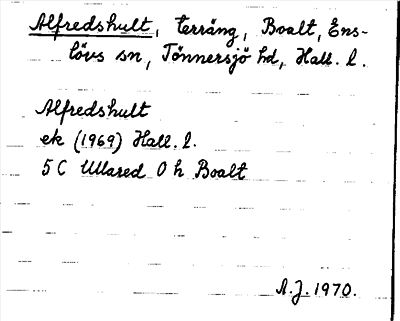 Alfredshult, terräng, Boalt, Ens-
lövs sn, Tönnersjö hd, Hall. l.
Alfredshult
ek (1969) Hall. l.
5 C Ullared 0 h Boalt
A.J. 1970.